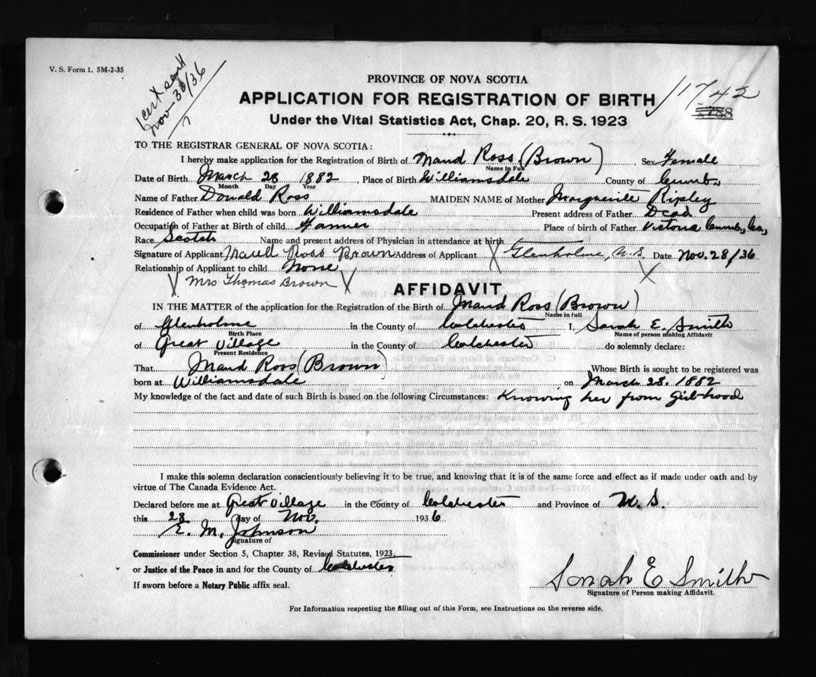 V. S. Form 1. 5M-2-35
Nov. 30/36
PROVINCE OF NOVA SCOTIA
APPLICATION FOR REGISTRATION OF BIRTH
11742
Under the Vital Statistics Act, Chap. 20, R. S. 1923
TO THE REGISTRAR GENERAL OF NOVA SCOTIA:
I hereby make application for the Registration of Birth of Maud Ross (Brown) Sex Female
Name in Full
Date of Birth March 28 1882 Place of Birth Williamsdale County of Cumb.
Month Day Year
Name of Father Donald Ross MAIDEN NAME of Mother Ripley
Residence of Father when child was born Williamsdale Present address of Father Dead
Occupation of Father at Birth of child Farmer Place of birth of Father Victoria Cumb. Co.,
Race Scotch Name and present address of Physician in attendance at birth
Signature of Applicant Maud Ross Brown Address of Applicant Glenholme, N.S. Date Nov. 28/36
Relationship of Applicant to child None
Mrs Thomas Brown
AFFIDAVIT
IN THE MATTER of the application for the Registration of the Birth of Maud Ross (Brown)
Name in full
of Glenholme in the County of Colchester I, Sarah E. Smith
Birth Place Name of person making Affidavit
of Great Village in the County of Colchester do solemnly declare:
Present Residence
That Maud Ross (Brown) Whose Birth is sought to be registered was
born at Williamsdale on March 28. 1882
My knowledge of the fact and date of such Birth is based on the following Circumstances: Knowing her from Girlhood
I make this solemn declaration conscientiously believing it to be true, and knowing that it is of the same force and effect as if made under oath and by
virtue of The Canada Evidence Act.
Declared before me at Great Village in the County of Colchester and Province of N. S.
this 28 day of Nov. 1936
E. M. Johnson
Signature of
Commissioner under Section 5, Chapter 38, Revised Statutes, 1923.
or Justice of the Peace in and for the County of Colchester
If sworn before a Notary Public affix seal.
Sarah E Smith
Signature of Person making Affidavit.
For Information respecting the filling out of this Form, see Instructions on the reverse side.